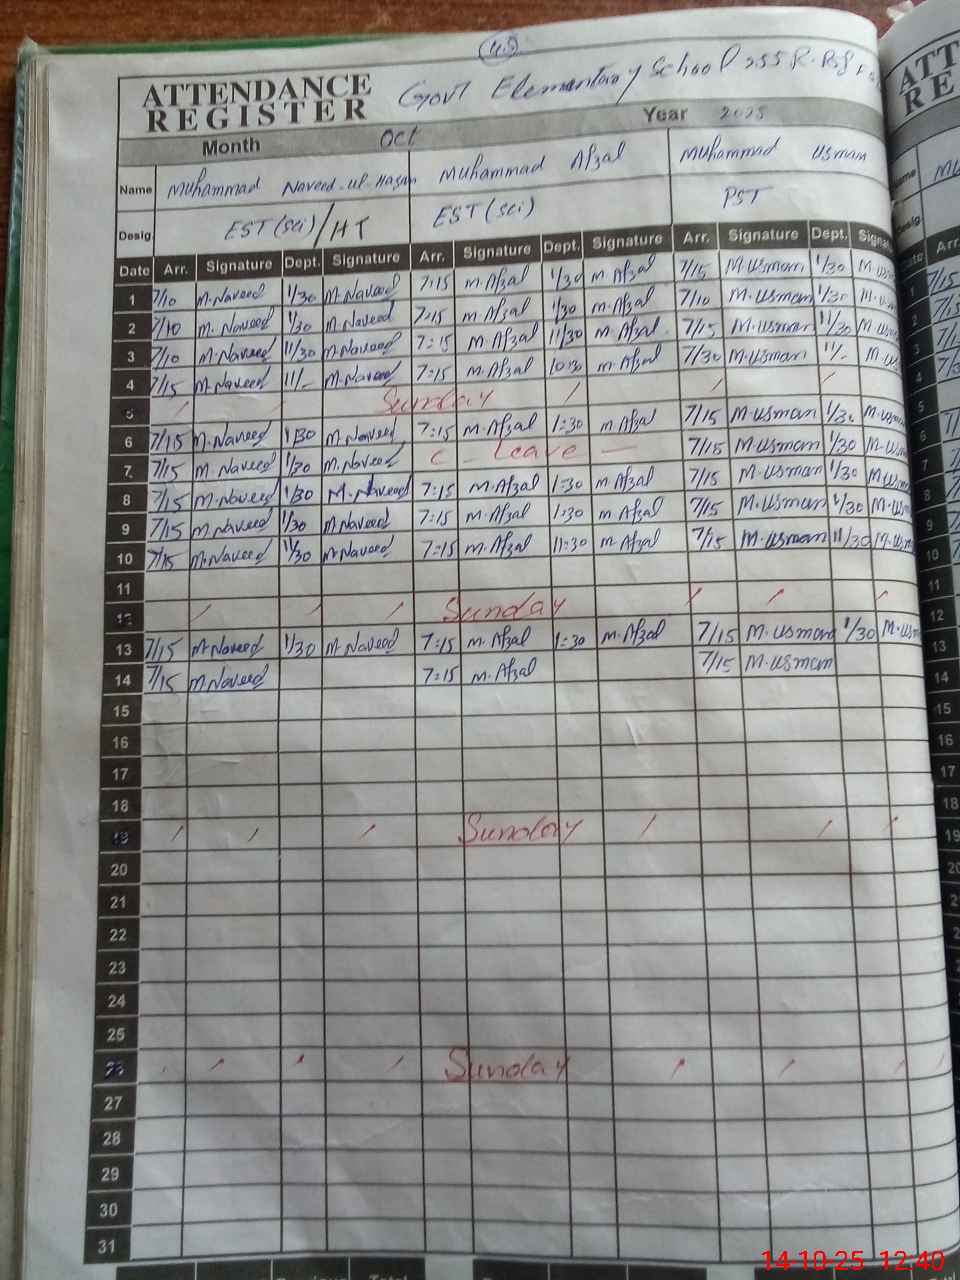 45
ATTENDANCE REGISTER Govt Elementary School 255 R.B
Month Oct Year 2025
Name Muhammad Naveed-ul-Hasan Muhammad Afzal Muhammad Usman
Desig. EST (Sci)/HT EST (Sci) PST
Date Arr. Signature Dept. Signature Arr. Signature Dept. Signature Arr. Signature Dept. Signa
1 7/10 M.Naveed 1/30 M.Naveed 7:15 M.Afzal 1/30 M.Afzal 7/15 M.Usman 1/30 M.Us
2 7/10 M.Naveed 1/30 M.Naveed 7:15 M.Afzal 1/30 M.Afzal 7/10 M.Usman 1/30 M.U
3 7/10 M.Naveed 11/30 M.Naveed 7:15 M.Afzal 11/30 M.Afzal 7/15 M.Usman 11/30 M.Us
4 7/15 M.Naveed 11/- M.Naveed 7:15 M.Afzal 10:30 M.Afzal 7/30 M.Usman 11/- M.Us
5 Sunday
6 7/15 M.Naveed 1/30 M.Naveed 7:15 M.Afzal 1:30 M.Afzal 7/15 M.Usman 1/30 M.Us
7 7/15 M.Naveed 1/30 M.Naveed C - Leave - 7/15 M.Usman 1/30 M.Us
8 7/15 M.Naveed 1/30 M.Naveed 7:15 M.Afzal 1:30 M.Afzal 7/15 M.Usman 1/30 M.Us
9 7/15 M.Naveed 1/30 M.Naveed 7:15 M.Afzal 1:30 M.Afzal 7/15 M.Usman 1/30 M.Us
10 7/15 M.Naveed 11/30 M.Naveed 7:15 M.Afzal 11:30 M.Afzal 7/15 M.Usman 11/30 M.Us
11
12 Sunday
13 7/15 M.Naveed 1/30 M.Naveed 7:15 M.Afzal 1:30 M.Afzal 7/15 M.Usman 1/30 M.Us
14 7/15 M.Naveed 7:15 M.Afzal 7/15 M.Usman
15
16
17
18
19 Sunday
20
21
22
23
24
25
26 Sunday
27
28
29
30
31
14-10-25 12:40